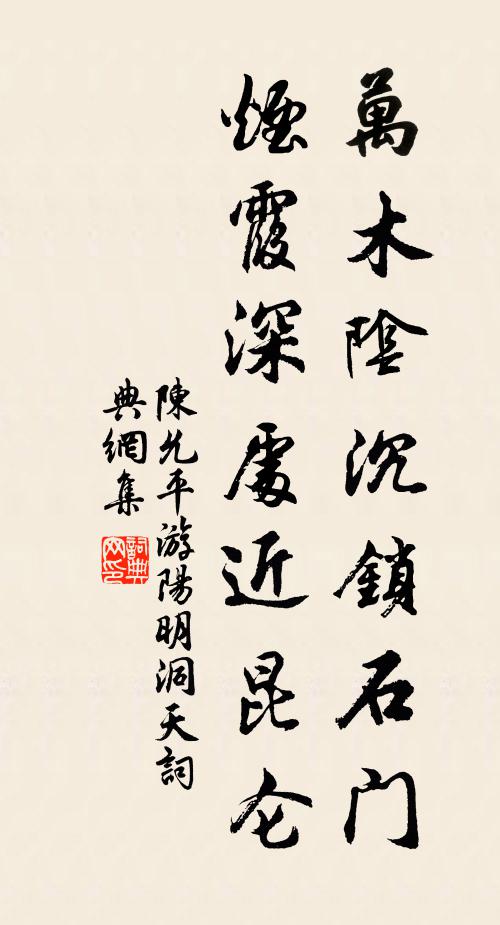 萬木陰沉鎖石门
煙霞深處近昆仑
陳允平游陽明洞天詞
典網集
詞典
网印